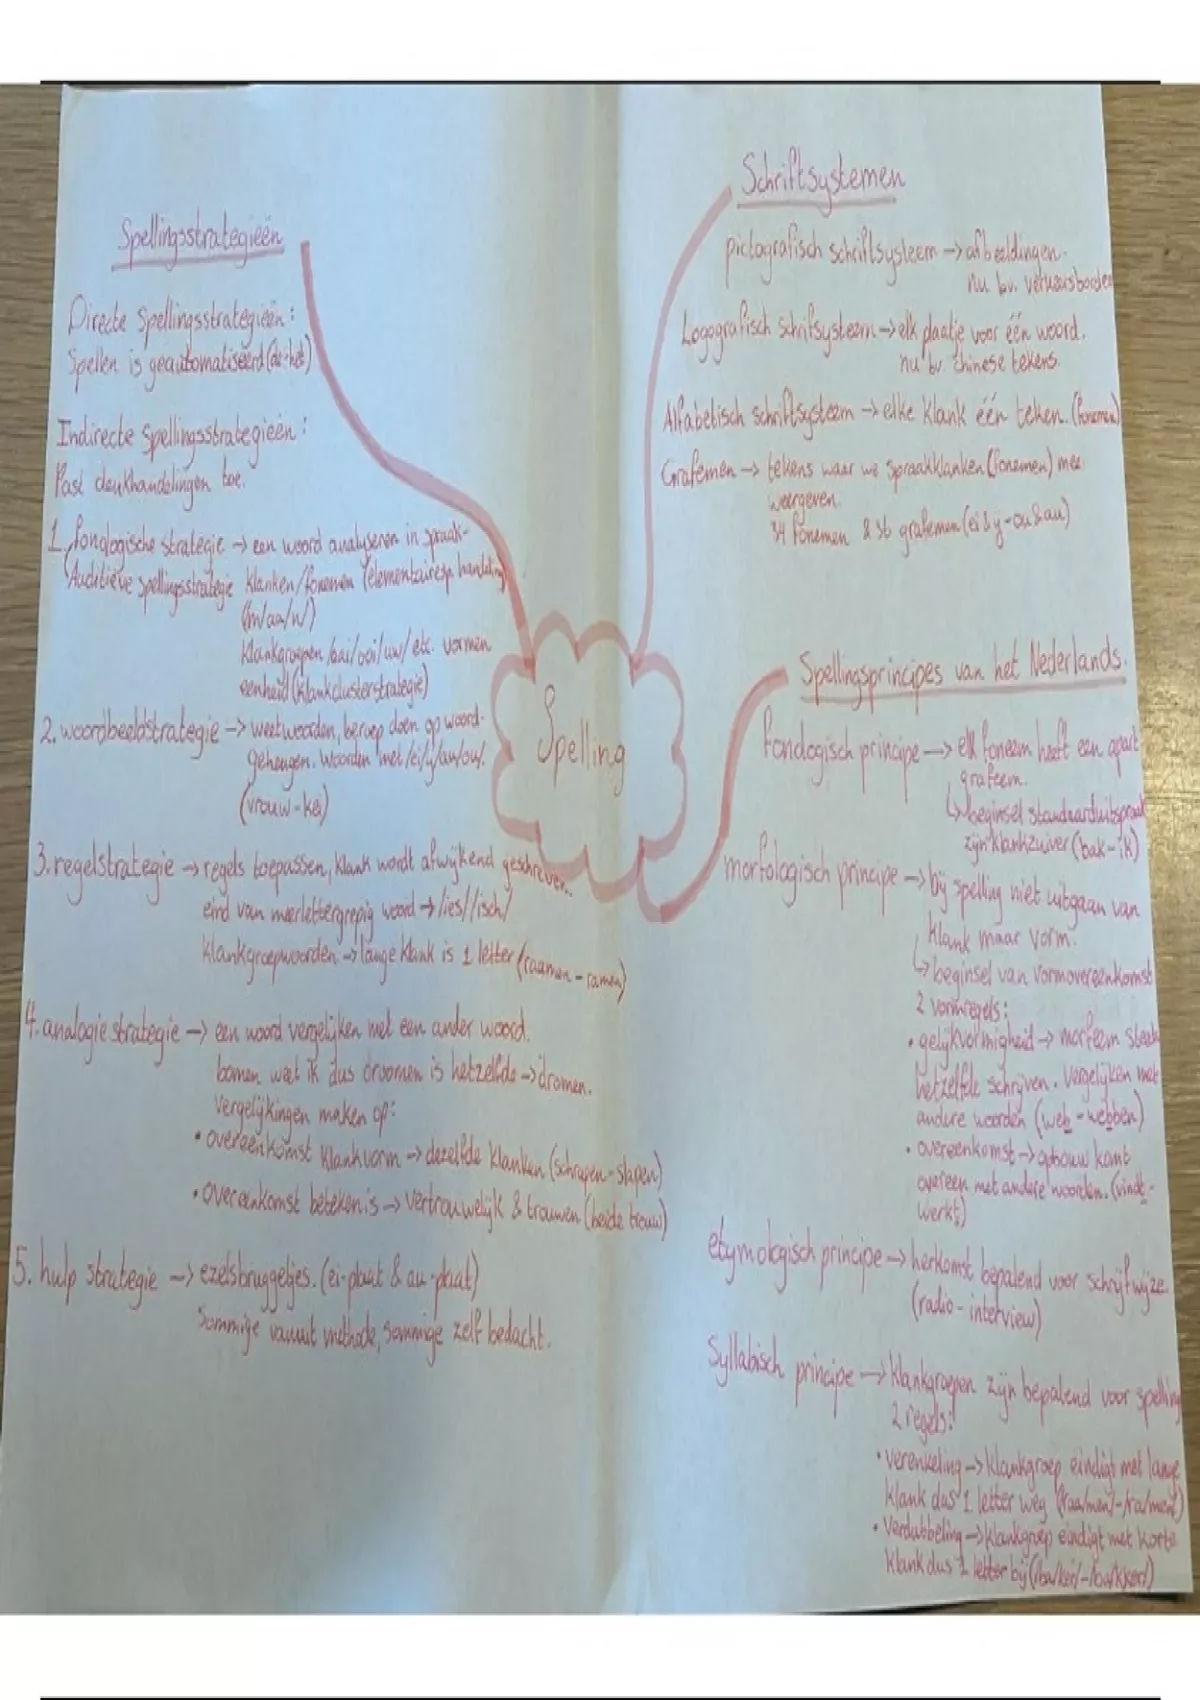 Spellingsstrategieën
Directe spellingsstrategieën:
Spellen is geautomatiseerd (de-het)
Indirecte spellingsstrategieën:
Past denkhandelingen toe.
1. fonologische strategie → een woord analyseren in spraak-
(Auditieve spellingsstrategie klanken/fonemen (elementaire sp. handeling)
(m/aa/n/)
klankgroepen /aai/ooi/uw/ etc. vormen
eenheid (klankclusterstrategie)
2. woordbeeldstrategie → weetwoorden, beroep doen op woord-
geheugen. Woorden met /ei/ij/au/ou/.
(vrouw-kei)
3. regelstrategie → regels toepassen, klank wordt afwijkend geschreven.
eind van meerlettergrepig woord → /ies//isch/
klankgroepwoorden → lange klank is 1 letter (raamen - ramen)
4. analogie strategie → een woord vergelijken met een ander woord.
bomen weet ik dus droomen is hetzelfde → dromen.
Vergelijkingen maken op:
• overeenkomst klankvorm → dezelfde klanken (schrapen-slapen)
• overeenkomst betekenis → vertrouwelijk & trouwen (beide trouw)
5. hulp strategie → ezelsbruggetjes. (ei-plaat & au-plaat)
Sommige vanuit methode, sommige zelf bedacht.
Spelling
Schriftsystemen
pictografisch schriftsysteem → afbeeldingen.
nu bv. verkeersborden
Logografisch schrifsysteem → elk plaatje voor één woord.
nu bv chinese tekens.
Alfabetisch schriftsysteem → elke klank één teken. (fonemen)
Grafemen → tekens waar we spraakklanken (fonemen) mee
weergeven.
34 fonemen & 36 grafemen (ei & ij - ou & au)
Spellingsprincipes van het Nederlands.
Fonologisch principe → elk foneem heeft een apart
grafeem.
↳ beginsel standaarduitspraak
zijn klankzuiver (bak-ik)
morfologisch principe → bij spelling niet uitgaan van
klank maar vorm.
↳ beginsel van vormovereenkomst
2 vormregels:
• gelijkvormigheid → morfeem steeds
hetzelfde schrijven. Vergelijken met
andere woorden (web - webben)
• overeenkomst → opbouw komt
overeen met andere woorden. (vindt-
werkt)
etymologisch principe → herkomst bepalend voor schrijfwijze.
(radio - interview)
Syllabisch principe → klankgroepen zijn bepalend voor spelling
2 regels:
• verenkeling → klankgroep eindigt met lange
klank dus 1 letter weg (/raa/men/-/ra/men/)
• Verdubbeling → klankgroep eindigt met korte
klank dus 1 letter bij (/ba/ker/-/ba/kker/)